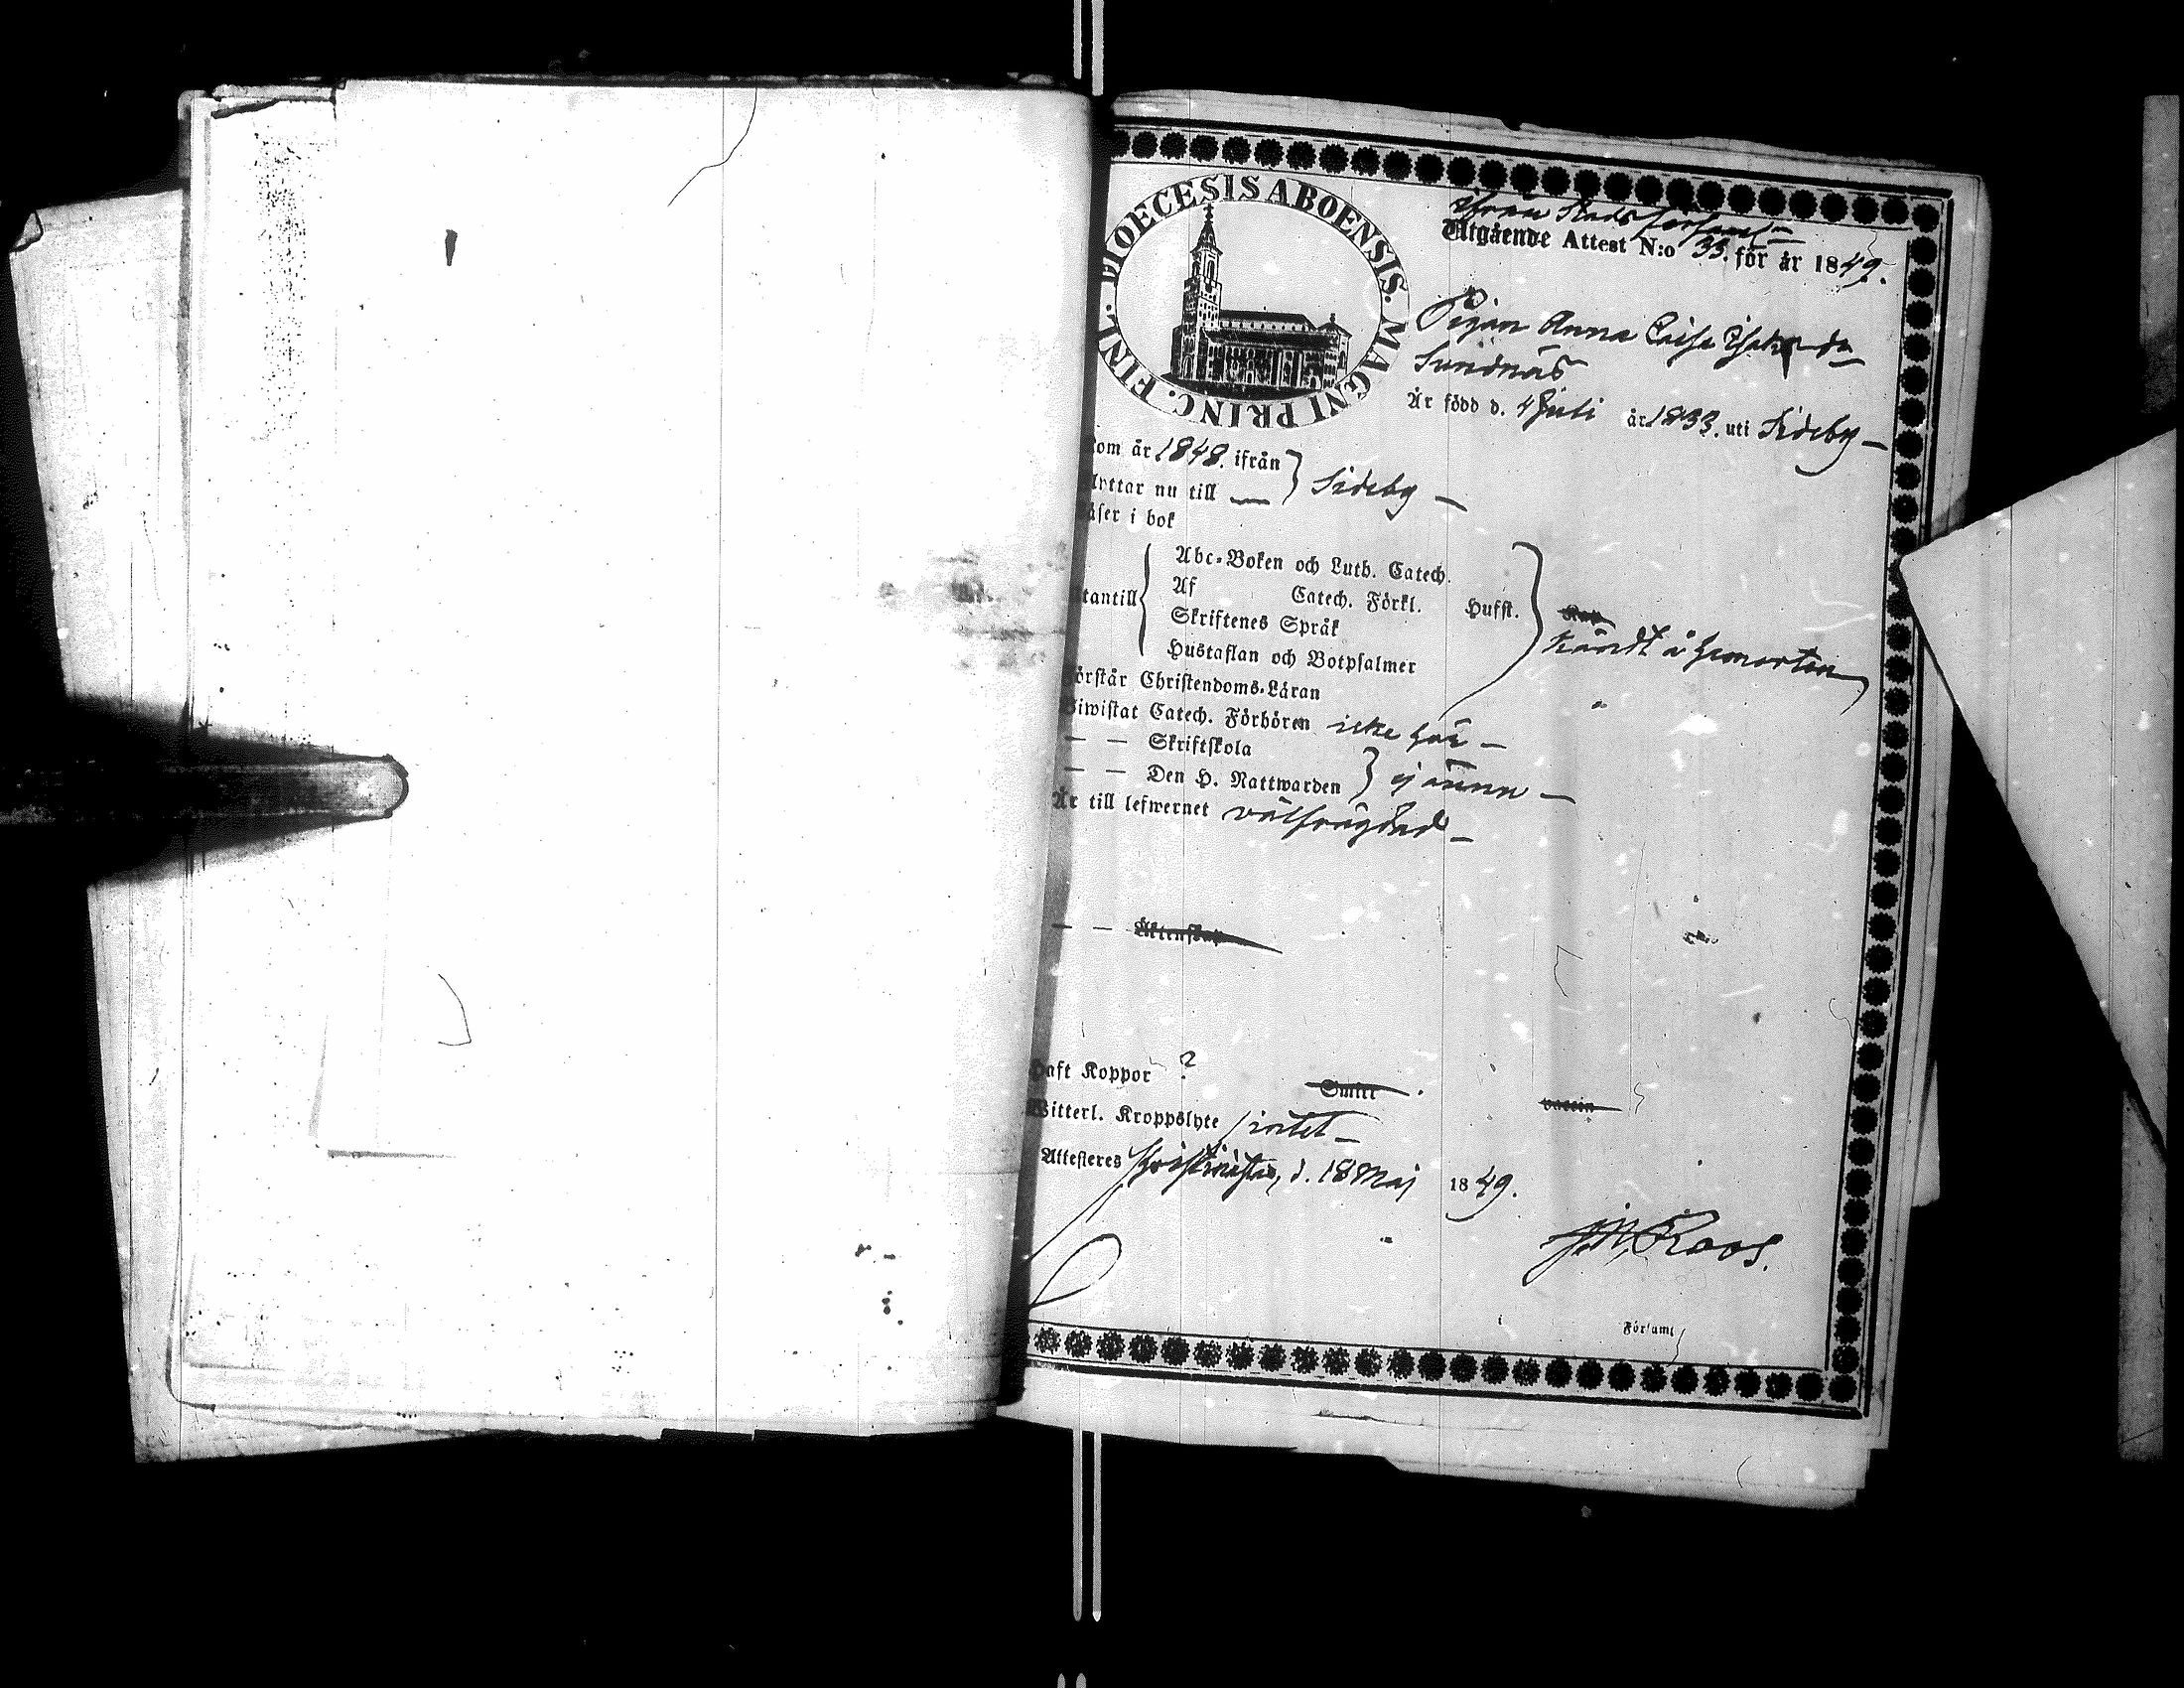 DIOECESIS ABOENSIS. MAGNI PRINC. FINL.
ifrån Stads församl
Utgående Attest N:o 33. för år 1849.
Pigan Anna Caisa
Sundnäs
Är född d. 4 Juli år 1833. uti Sideby —
kom år 1848. ifrån
lyttar nu till — } Sideby —
äser i bok
tantill
Abc-Boken och Luth. Catech.
Af Catech. Förkl. Hufst.
Skriftenes Språk
Hustaflan och Botpsalmer
kändt å hemorten
örstår Christendoms-Läran
Biwistat Catech. Förhören icke här —
— — Skriftskola
— — Den H. Nattwarden } ej ännu —
Är till lefwernet välfrägdad —
— — Äktenskap
Haft Koppor ?
Witterl. Kroppslyte intet —
Attesteres Christinestad, d. 18 Maj 1849.
Roos.
i Församl